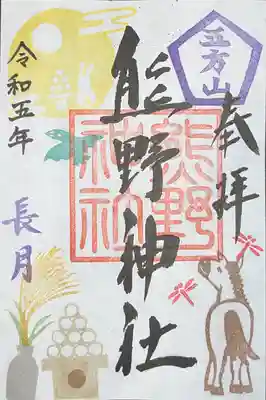 五方山
奉拝
熊野神社
熊野
神社
令和五年
長月